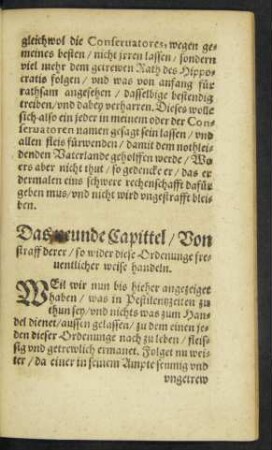 gleichwol die Conseruatores, wegen ge-
meines besten / nicht jeren lassen / sondern
viel mehr dem getrewen Rath des Hippo-
cratis folgen / vnd was von anfang für
rathsam angesehen / dasselbige bestendig
treiben / vnd dabey verharren. Dieses wolle
sich also ein jeder in meinem oder der Con-
seruatoren namen gesagt sein lassen / vnd
allen fleis fürwenden / damit dem nothlei-
denden Vaterlande geholffen werde / Wo
ers aber nicht thut / so gedencke er / das er
dermalen eins schwere rechenschafft dafür
geben mus / vnd nicht wird vngestrafft blei-
ben.
Das neunde Capittel / Von
straff derer / so wider diese Ordenunge fre-
uentlicher weise handeln.
WEil wir nun bis hieher angezeiget
haben / was in Pestilentzzeiten zu
thun sey / vnd nichts was zum Han-
del dienet / aussen gelassen / zu dem einen je-
den dieser Ordenunge nach zu leben / fleis-
sig vnd getrewlich ermanet. Folget nu wei-
ter / da einer in seinem Ampte semmig vnd
vngetrew